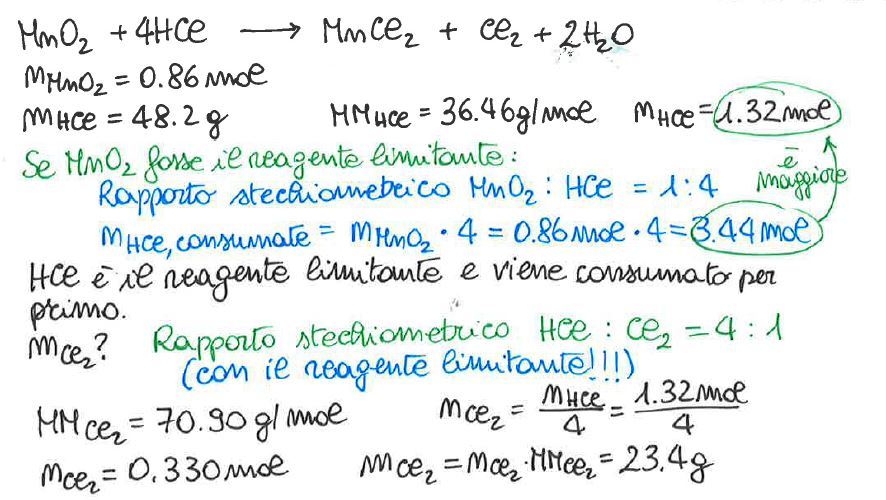 MnO₂ + 4HCl ⟶ MnCl₂ + Cl₂ + 2H₂O
nMnO₂ = 0.86 mol
mHCl = 48.2 g MMHCl = 36.46 g/mol nHCl = 1.32 mol
Se MnO₂ fosse il reagente limitante: è maggiore
Rapporto stechiometrico MnO₂ : HCl = 1:4
nHCl, consumate = nMnO₂ · 4 = 0.86 mol · 4 = 3.44 mol
HCl è il reagente limitante e viene consumato per
primo.
mCl₂? Rapporto stechiometrico HCl : Cl₂ = 4 : 1
(con il reagente limitante!!!)
MMCl₂ = 70.90 g/mol nCl₂ = nHCl/4 = 1.32 mol/4
nCl₂ = 0.330 mol mCl₂ = nCl₂ · MMCl₂ = 23.4 g